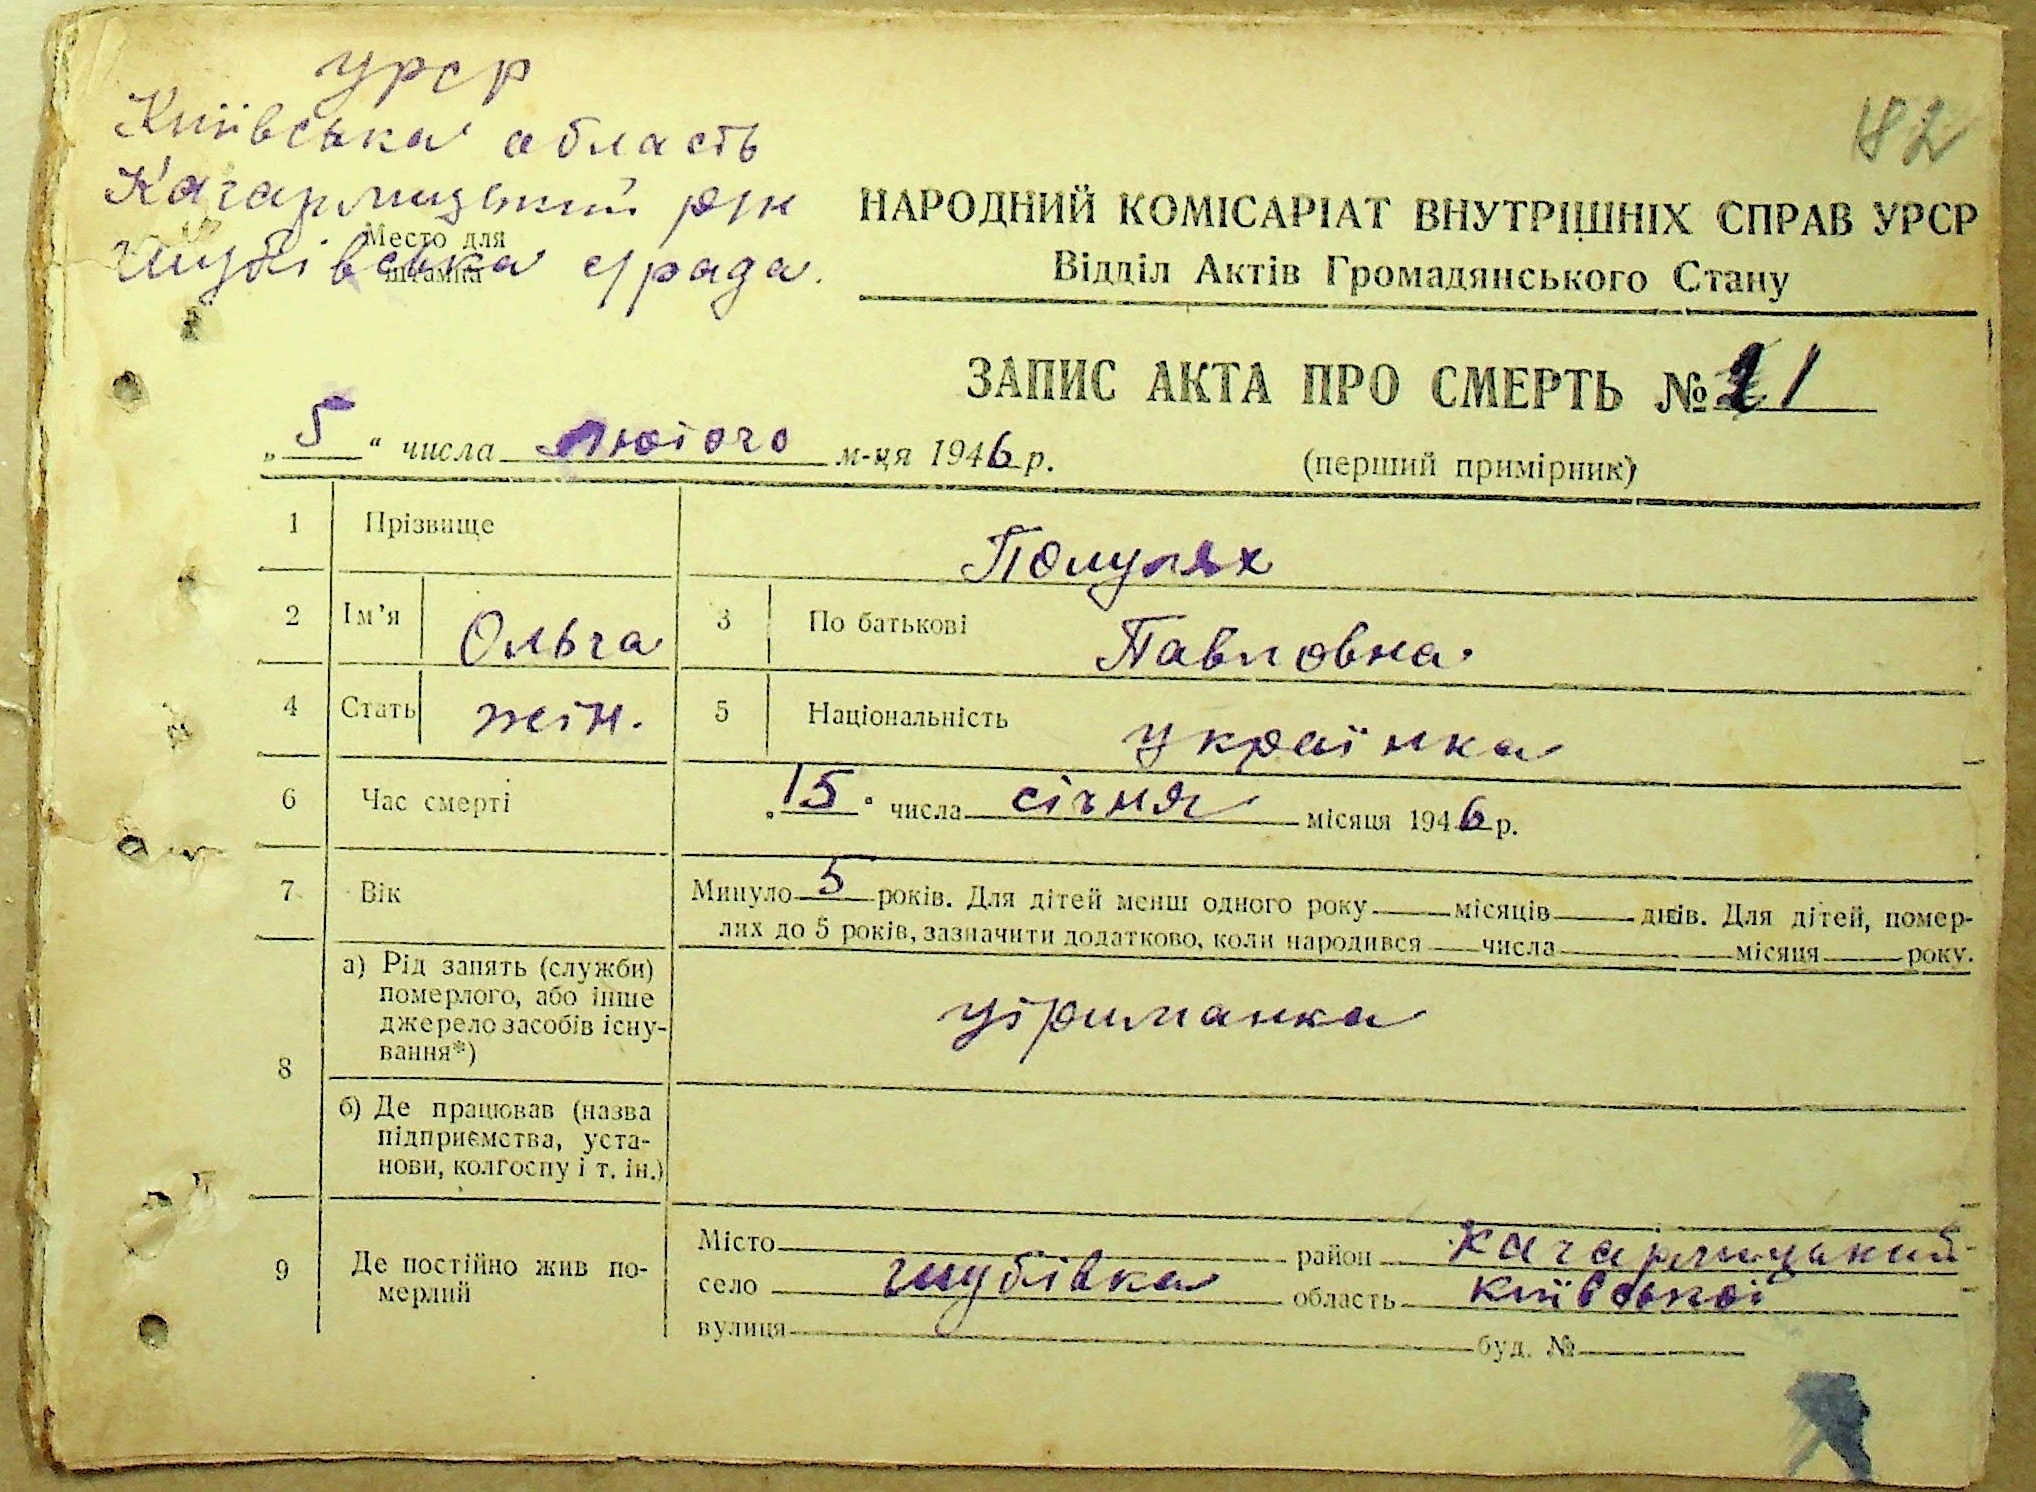 УРСР
Київська область
Кагарлицький р/н
Шубівська с/рада.
Место для
штампа
82
НАРОДНИЙ КОМІСАРІАТ ВНУТРІШНІХ СПРАВ УРСР
Відділ Актів Громадянського Стану
ЗАПИС АКТА ПРО СМЕРТЬ № 21
„5“ числа лютого м-ця 1946 р.
(перший примірник)
1 Прізвище Полулях
2 Ім’я Ольга 3 По батькові Павловна
4 Стать жін. 5 Національність українка
6 Час смерті „15“ числа січня місяця 1946 р.
7 Вік Минуло 5 років. Для дітей менш одного року місяців днів. Для дітей, помер-
лих до 5 років, зазначити додатково, коли народився числа місяця року.
8 а) Рід занять (служби)
померлого, або інше
джерело засобів існу-
вання*)
утриманка
б) Де працював (назва
підприємства, уста-
нови, колгоспу і т. ін.)
9 Де постійно жив по-
мерлий
Місто район Кагарлицький
село Шубівка область Київської
вулиця буд. №